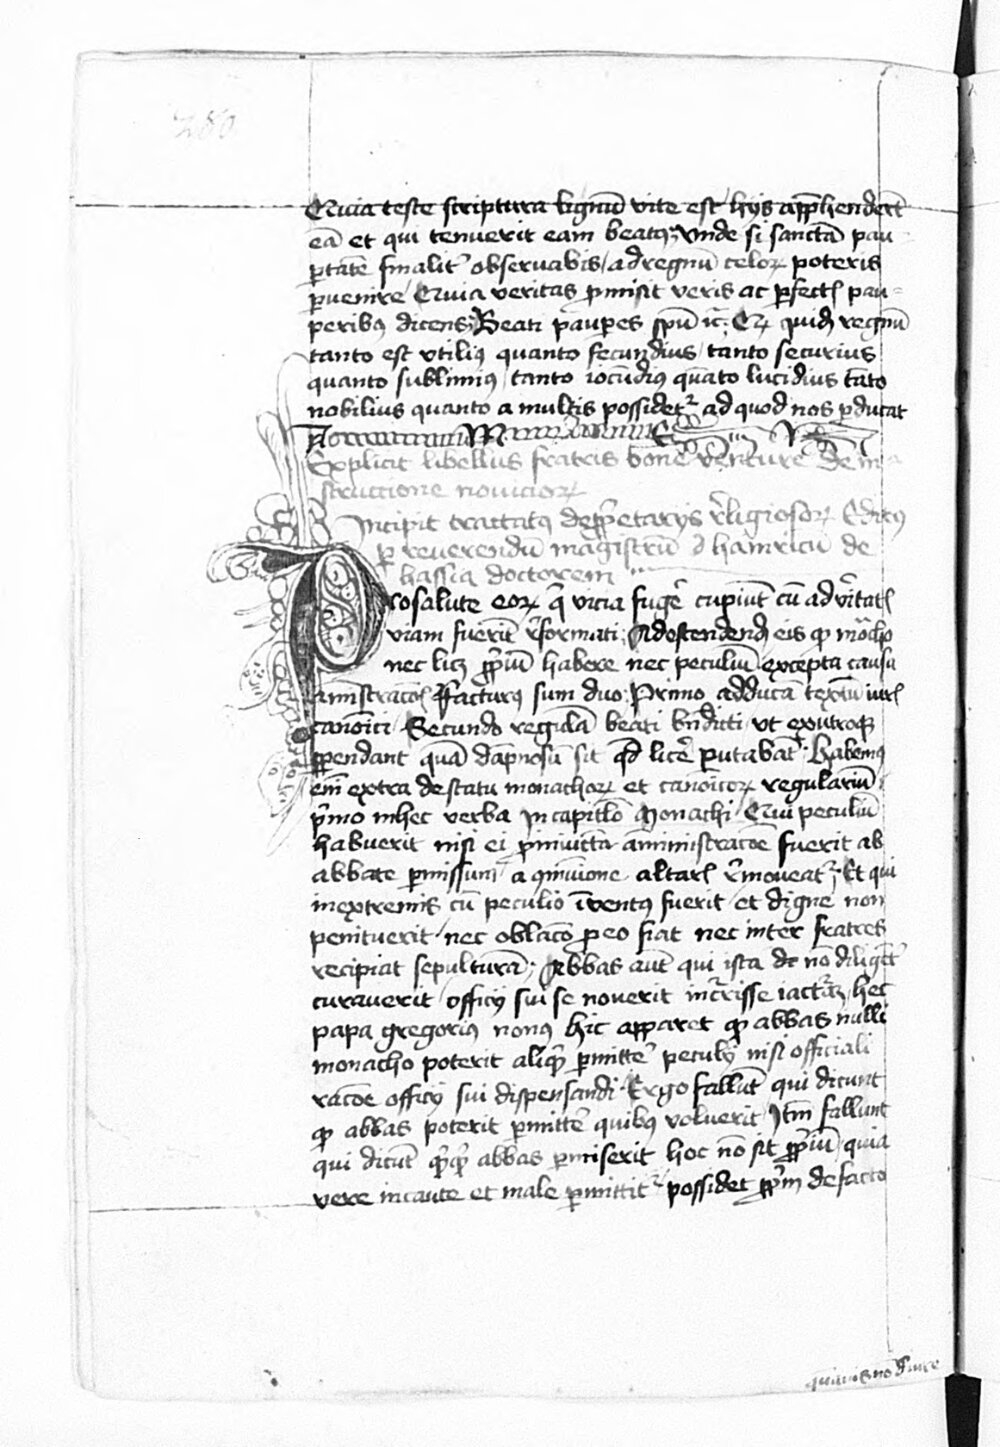 280
Quia teste scriptura lignū vite est hijs apphenderīt
eā et qui tenuerit eam beatus vnde si sanctā pau
ptatē finalit' observabis / ad regnū celoꝝ poteris
pvenire / Quia veritas pmisit veris ac pfectis pau=
peribꝰ dicens Beati paupes spū ⁊c̄ Et quidē regnū
tanto est vtiliꝰ quanto fecundius / tanto securius
quanto sublimiꝰ / tanto iocūdiꝰ quāto lucidius tāto
nobilius quanto a multis possidet' ad quod nos pducat
Explicit libellus fratris bone vēnture de in
structione novicioꝝ
Incipit tractatꝰ de pprietarijs religiosoꝝ Editꝰ
p reverendū magistrū hainricū de
hassia doctorem
Pro salute eoꝝ q̄ vicia fugē cupiūt cū ad vitatis
viam fuerīt reformati Ad ostendendū eis qꝫ mōcho
nec licꝫ ppriū habere nec peculiū excepta causa
aministracōis Facturꝰ sum duo Primo adducā textū iuris
canonici Secundo regulā beati bn̄dicti vt ex utroqꝫ
ppendant quā dāpnosū sit qd licē putabāt Habemꝰ
em̄ extra de statu monachoꝝ et canōicoꝝ regulariū
pmo in hec verba In capitlō Monachi Qui peculiū
habuerit nisi ei p iniuncta amministracōe fuerit ab
abbate pmissum / a cōmunione altaris removeat' Et qui
in extremis cū peculio inventꝰ fuerit et digne non
penituerit / nec oblacō p eo fiat nec inter fratres
recipiat sepulturā Abbas aut qui ista nō diligēt'
curaverit officij sui se noverit incurrisse iacturā hec
papa gregoriꝰ nonꝰ hic apparet qꝫ abbas nulli
monacho poterit aliqd pmittē peculij nisi officiali
racōe officij sui dispensandi Ergo fallūt qui dicunt
qꝫ abbas poterit pmittē quibꝰ voluerit Itm̄ fallunt
qui dicūt abbas pmiserit hoc nō sit ppriū quia
vere incaute et male pmittit' possidet ppriū de facto
quāvis nō de iure